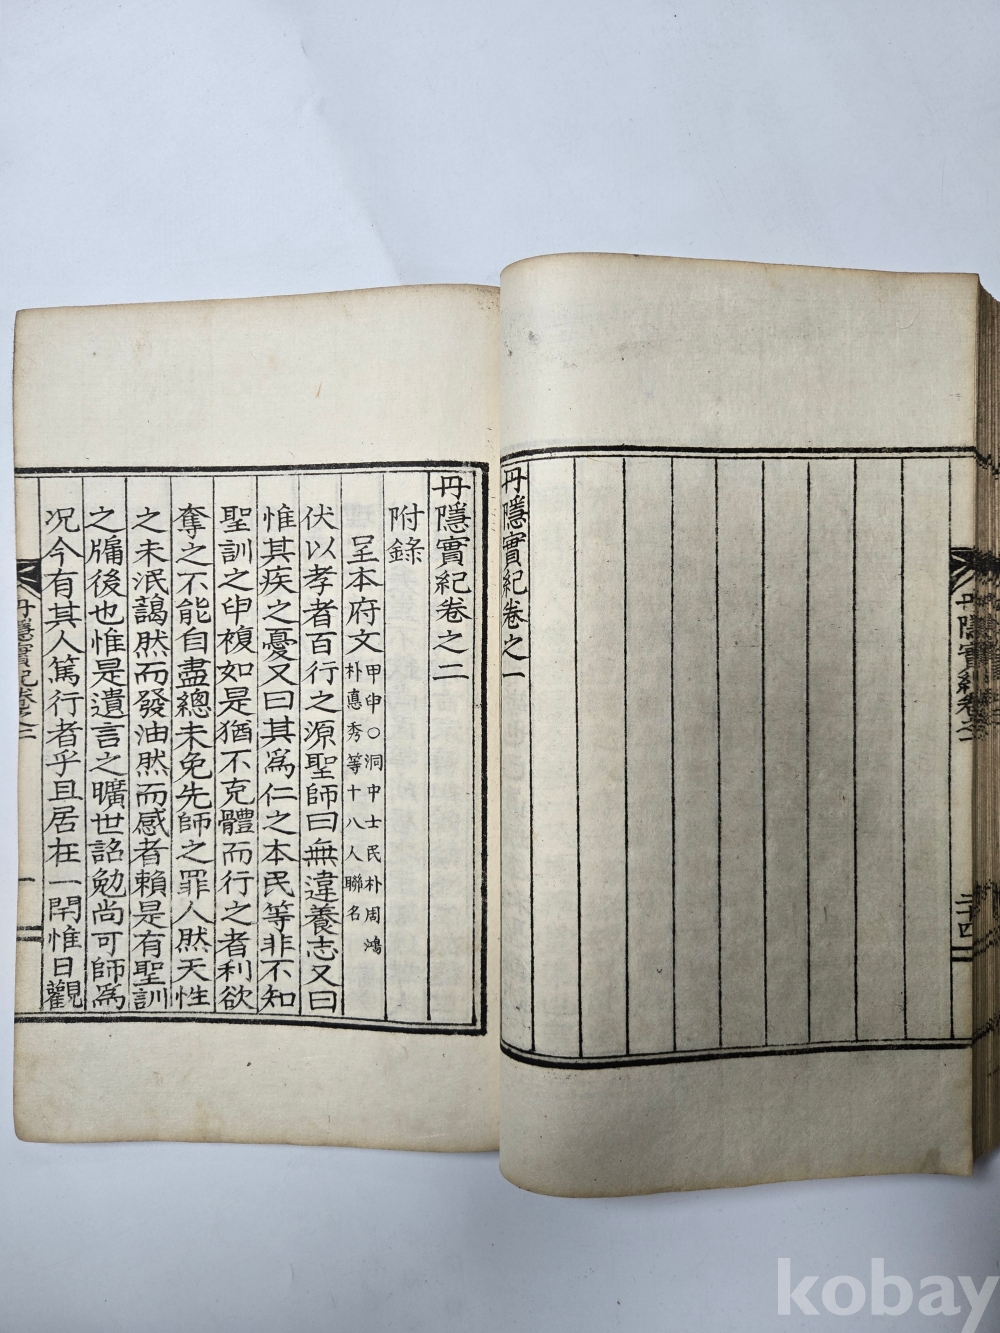 丹隱實紀卷之一
三十四
丹隱實紀卷之一
丹隱實紀卷之二
附錄
呈本府文 甲申○洞中士民朴周鴻
朴悳秀等十八人聯名
伏以孝者百行之源聖師曰無違養志又曰
惟其疾之憂又曰其爲仁之本民等非不知
聖訓之申複如是猶不克體而行之者利欲
奪之不能自盡總未免先師之罪人然天性
之未泯藹然而發油然而感者賴是有聖訓
之牖後也惟是遺言之曠世詔勉尚可師爲
况今有其人篤行者乎且居在一閈惟日觀
丹隱實紀卷之二
一
kobay